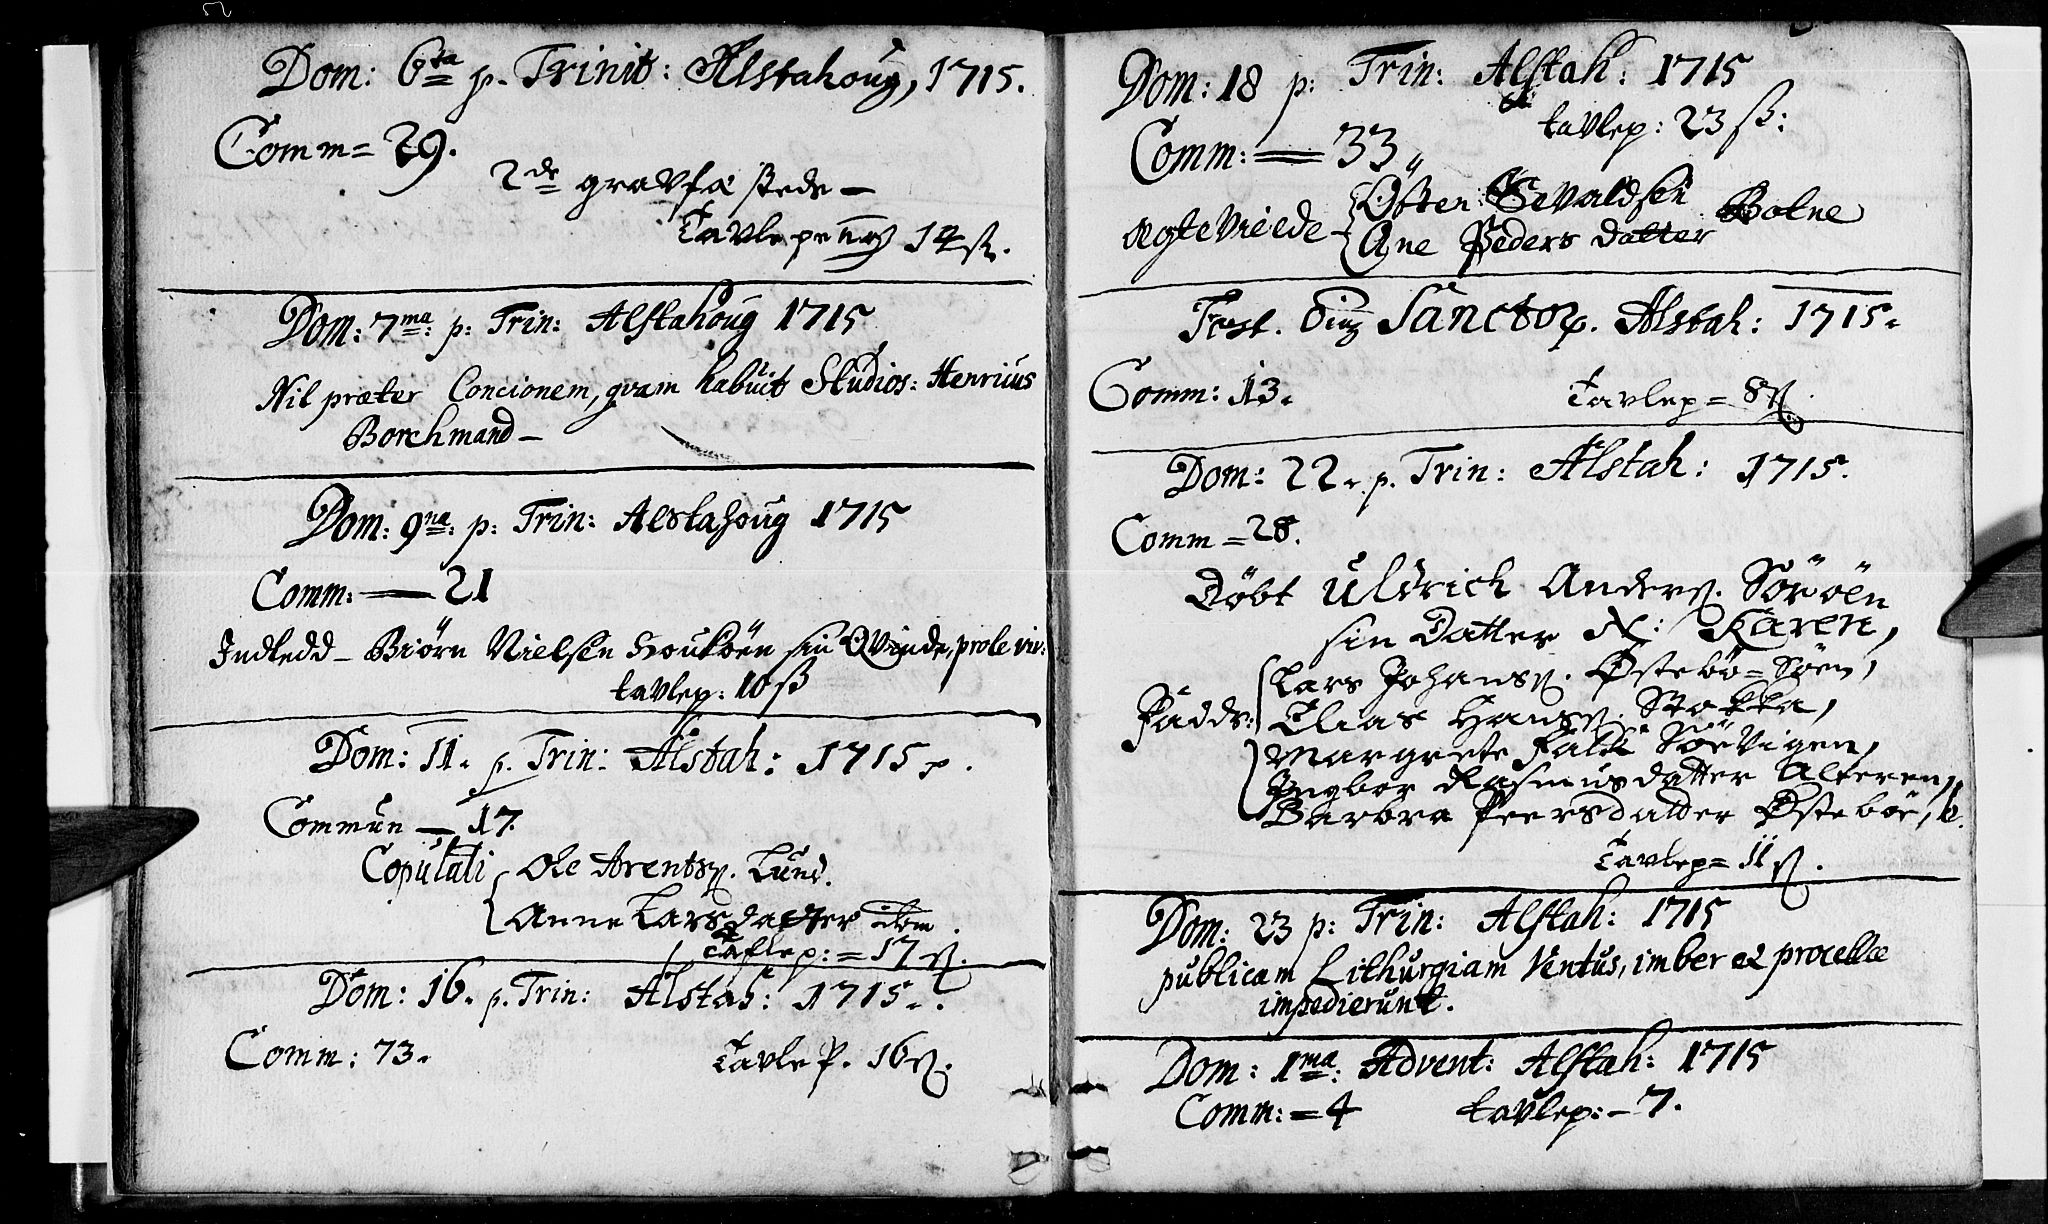 Dom: 6ta p. Trinit: Alstahoug, 1715.
Comm= 29.
2de gravfæstede –
Tavlepeng 14 ß.
Dom: 7ma: p: Trin: Alstahoug 1715
Nil præter Concionem, qvam habuit Studios: Henricus
Borchmand –
Dom: 9na: p: Trin: Alstahoug 1715
Comm: — 21
Indledd – Biørn Nielsen sin Qvinde, prole vir:
tavlep: 10 ß
Dom: 11. p. Trin: Alstah: 1715.
Commun — 17.
Copulati { Ole Arentsß. Lund.
Anne Larsdatter ibm.
Taflep: = 17 ß.
Dom: 16. p. Trin: Alstah: 1715.
Comm: 73.
TavleP. 16 ß.
Dom: 18 p: Trin: Alstah: 1715
tavlep: 23 ß:
Comm: — 33
Østen Sevaldsen
ægteviede – { Botne
Ane Peders datter
Fest. Sanctor. Alstah: 1715.
Comm: 13.
Tavlep = 8 ß.
Dom: 22. p. Trin: Alstah: 1715.
Comm = 28.
Döbt Uldrich Andersß. Söröen
sin Datter N: Karen,
Lars Johansß. Østebö= Söen,
Fadd: Elias Hansß. Stokka,
Margrete Falck Söevigen,
Ingbor Rasmusdatter Alteren,
Barbra Peersdatter Østeböe,
Tavlep= 11 ß.
Dom: 23 p: Trin: Alstah: 1715
publicam Lithurgiam Ventus, imber et procellæ
impedierunt.
Dom: 1ma: Advent: Alstah: 1715
Comm: = 4 tavlep: – 7.